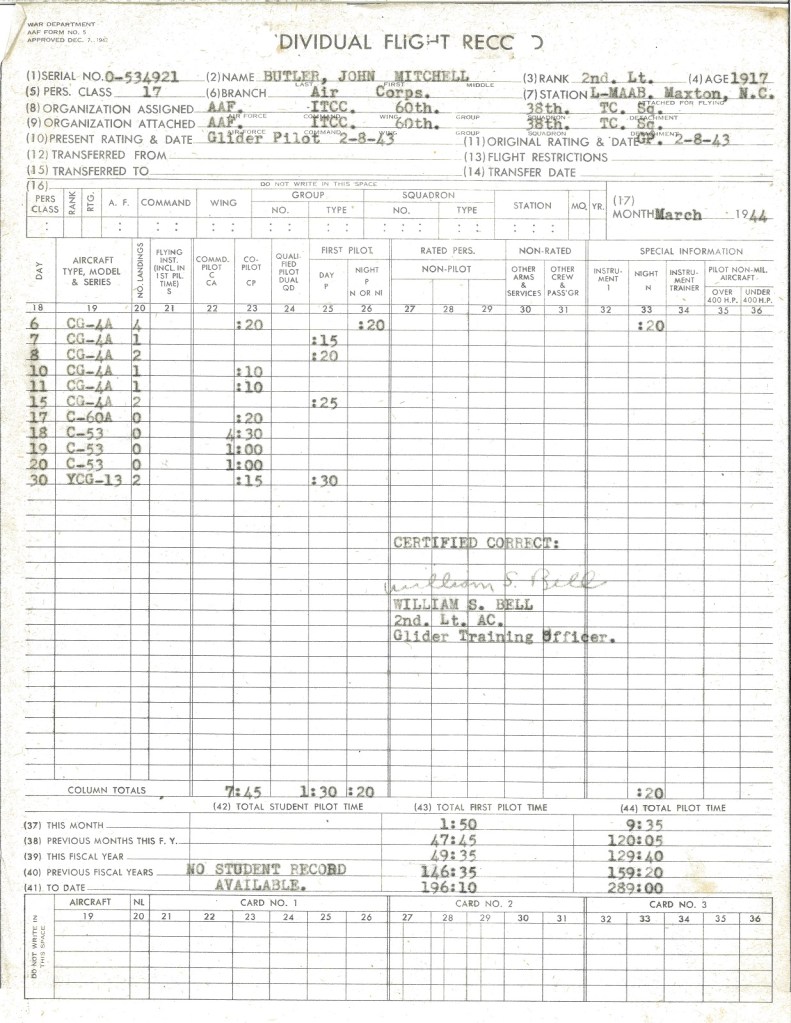 WAR DEPARTMENT
AAF FORM NO. 5
APPROVED DEC. 7, 19
DIVIDUAL FLIGHT REC D
(1) SERIAL NO. O-534921 (2) NAME BUTLER, JOHN MITCHELL (3) RANK 2nd. Lt. (4) AGE 1917
LAST FIRST MIDDLE
(5) PERS. CLASS 17 (6) BRANCH Air Corps. (7) STATION L-MAAB. Maxton, N.C.
(8) ORGANIZATION ASSIGNED AAF. ITCC. 60th. 38th. TC. Sq. ATTACHED FOR FLYING
AIR FORCE COMMAND WING GROUP SQUADRON DETACHMENT
(9) ORGANIZATION ATTACHED AAF. ITCC. 60th. 38th. TC. Sq.
AIR FORCE COMMAND WING GROUP SQUADRON DETACHMENT
(10) PRESENT RATING & DATE Glider Pilot 2-8-43 (11) ORIGINAL RATING & DATE GP. 2-8-43
(12) TRANSFERRED FROM (13) FLIGHT RESTRICTIONS
(15) TRANSFERRED TO (14) TRANSFER DATE
(16) DO NOT WRITE IN THIS SPACE
PERS CLASS RANK RTG. A. F. COMMAND WING GROUP NO. TYPE SQUADRON NO. TYPE STATION MO. YR. (17) MONTH March 1944
DAY AIRCRAFT TYPE, MODEL & SERIES NO. LANDINGS FLYING INST. (INCL. IN 1ST PIL. TIME) S COMMD. PILOT C CA CO-PILOT CP QUALIFIED PILOT DUAL QD FIRST PILOT DAY P NIGHT P N OR NI RATED PERS. NON-PILOT NON-RATED OTHER ARMS & SERVICES OTHER CREW & PASS'GR SPECIAL INFORMATION INSTRUMENT I NIGHT N INSTRUMENT TRAINER PILOT NON-MIL. AIRCRAFT OVER 400 H.P. UNDER 400 H.P.
18 19 20 21 22 23 24 25 26 27 28 29 30 31 32 33 34 35 36
6 CG-4A 4 :20 :20 :20
7 CG-4A 1 :15
8 CG-4A 2 :20
10 CG-4A 1 :10
11 CG-4A 1 :10
15 CG-4A 2 :25
17 C-60A 0 :20
18 C-53 0 4:30
19 C-53 0 1:00
20 C-53 0 1:00
30 YCG-13 2 :15 :30
CERTIFIED CORRECT:
William S. Bell
WILLIAM S. BELL
2nd. Lt. AC.
Glider Training Officer.
COLUMN TOTALS 7:45 1:30 :20 :20
(42) TOTAL STUDENT PILOT TIME (43) TOTAL FIRST PILOT TIME (44) TOTAL PILOT TIME
(37) THIS MONTH 1:50 9:35
(38) PREVIOUS MONTHS THIS F. Y. 47:45 120:05
(39) THIS FISCAL YEAR 49:35 129:40
(40) PREVIOUS FISCAL YEARS NO STUDENT RECORD 146:35 159:20
(41) TO DATE AVAILABLE. 196:10 289:00
DO NOT WRITE IN THIS SPACE
AIRCRAFT NL CARD NO. 1 CARD NO. 2 CARD NO. 3
19 20 21 22 23 24 25 26 27 28 29 30 31 32 33 34 35 36